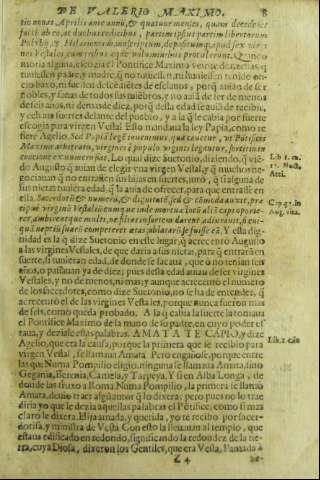 DE VALERIO MAXIMO. 8
tio nouas Aprilis ante annũ, & quatuor menses, quam decederet
facti ab eo, ac duobus codicibus, partim ipsius partim libertorum
Polybij, & Hilarionis manu scriptum, depositumque apud se
nes Vestales, cum tribus
moria alguna, escogia el Pontifice Maximo veynte donzellas, q
nacio baxo, ni fuessen descẽdiẽtes de esclauos, porq̃ auian de ser
nobles, y sanas de todos sus miẽbros, y no auiã de ser de menos
de seis años, ni de mas de diez, porq̃ desta edad se auiã de recibir,
y echauã suertes delante del pueblo, y a la q̃ le cabia por suerte
escogia para virgen Vestal. Esto mandaua la ley Papia, como re
fiere Agelio. Sed Papiã legẽ inuenimus, qua cauetur, vt Põtificis
Maximi arbitratu, virgines è populo viginti legantur, sortitioque in
concione ex numero fiat. Lo qual dize Suetonio, diziendo, q̃ viẽ-
do Augusto q̃ auian de elegir vna virgen Vestal, y q̃ muchos ne-
gociauan q̃ no entrassen sus hijas en suertes, juro, q̃ si alguna de
sus nietas tuuiera edad, q̃ la auia de ofrecer, para que entrasse en
ella. Sacerdotũ & numerũ, & dignitatẽ, sed & cõmoda auxit, præ-
cipuè virginũ Vestaliũ: cumque in demortuæ locũ aliã capi oporte-
ret, ambirentque multi, ne filias in sortem darent: adiurauit, si cui-
quã neptiũ suarũ competeret ætas, oblaturũ se fuisse eã. Y esta dig-
nidad es la q̃ dize Suetonio en este lugar, q̃ acrecentò Augusto
a las virgines Vestales, de que daria a sus nietas, para q̃ entrarã en
suerte, si tuuieran edad, de donde se saca, que o no tenian seis
años, o passauan ya de diez; pues desta edad auian de ser virgines
Vestales, y no de menos, ni mas; y aunque acrecentò el numero
de los sacerdotes, como dize Suetonio, no se ha de entender, q̃
acrecentò el de las virgines Vestales, porque nunca fueron mas
de seis, como queda probado. A la q̃ cabia la suerte la tomaua
el Pontifice Maximo de la mano de su padre, en cuyo poder es
taua, y deziale estas palabras. AMATA TE CAPIO, y dize
Agelio, que era la causa, porque la primera que se recibio para
virgen Vestal, se llamaua Amata. Pero engañose, porque entre
las que Numa Pompilio eligio, ninguna se llamaua Amata, sino
Gegania, Berenia, Camilo, y Tarpeya. Y si en Alba Longa, de
donde las truxo a Roma Numa Pompilio, la primera se llamò
Amata, deuio traer algũ autor q̃ lo dixera: pero pues no lo trae
diria yo que le dezia aquellas palabras el Põtifice, como si mas
claro le dixera. Hija amada, y querida, yo te recibo por sacer-
dotisa, y ministra de Vesta. Con esto la lleuauan al templo, que
estaua edificado en redondo, significando la redondez de la tie-
rra, cuya Diosa, dixeron los Gentiles, que era Vesta, llamada a-
Lib. 1. ca.
12. Noct.
Atti.
Cap. 31. in
Augusta.
Lib. 1. cap